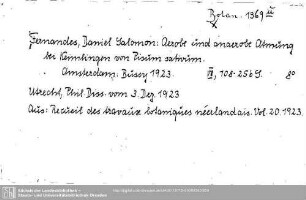 Botan. 1369 u
Fernandes, Daniel Salomon: Aerobe und anaerobe Atmung
bei Keimlingen von Pisum sativum.
Amsterdam: Bussy 1923. VI, 108-256 S. 8o
Utrecht, Phil. Diss. vom 3. Dez. 1923
Aus: Recueil des travaux botaniques néerlandais. Vol. 20. 1923.